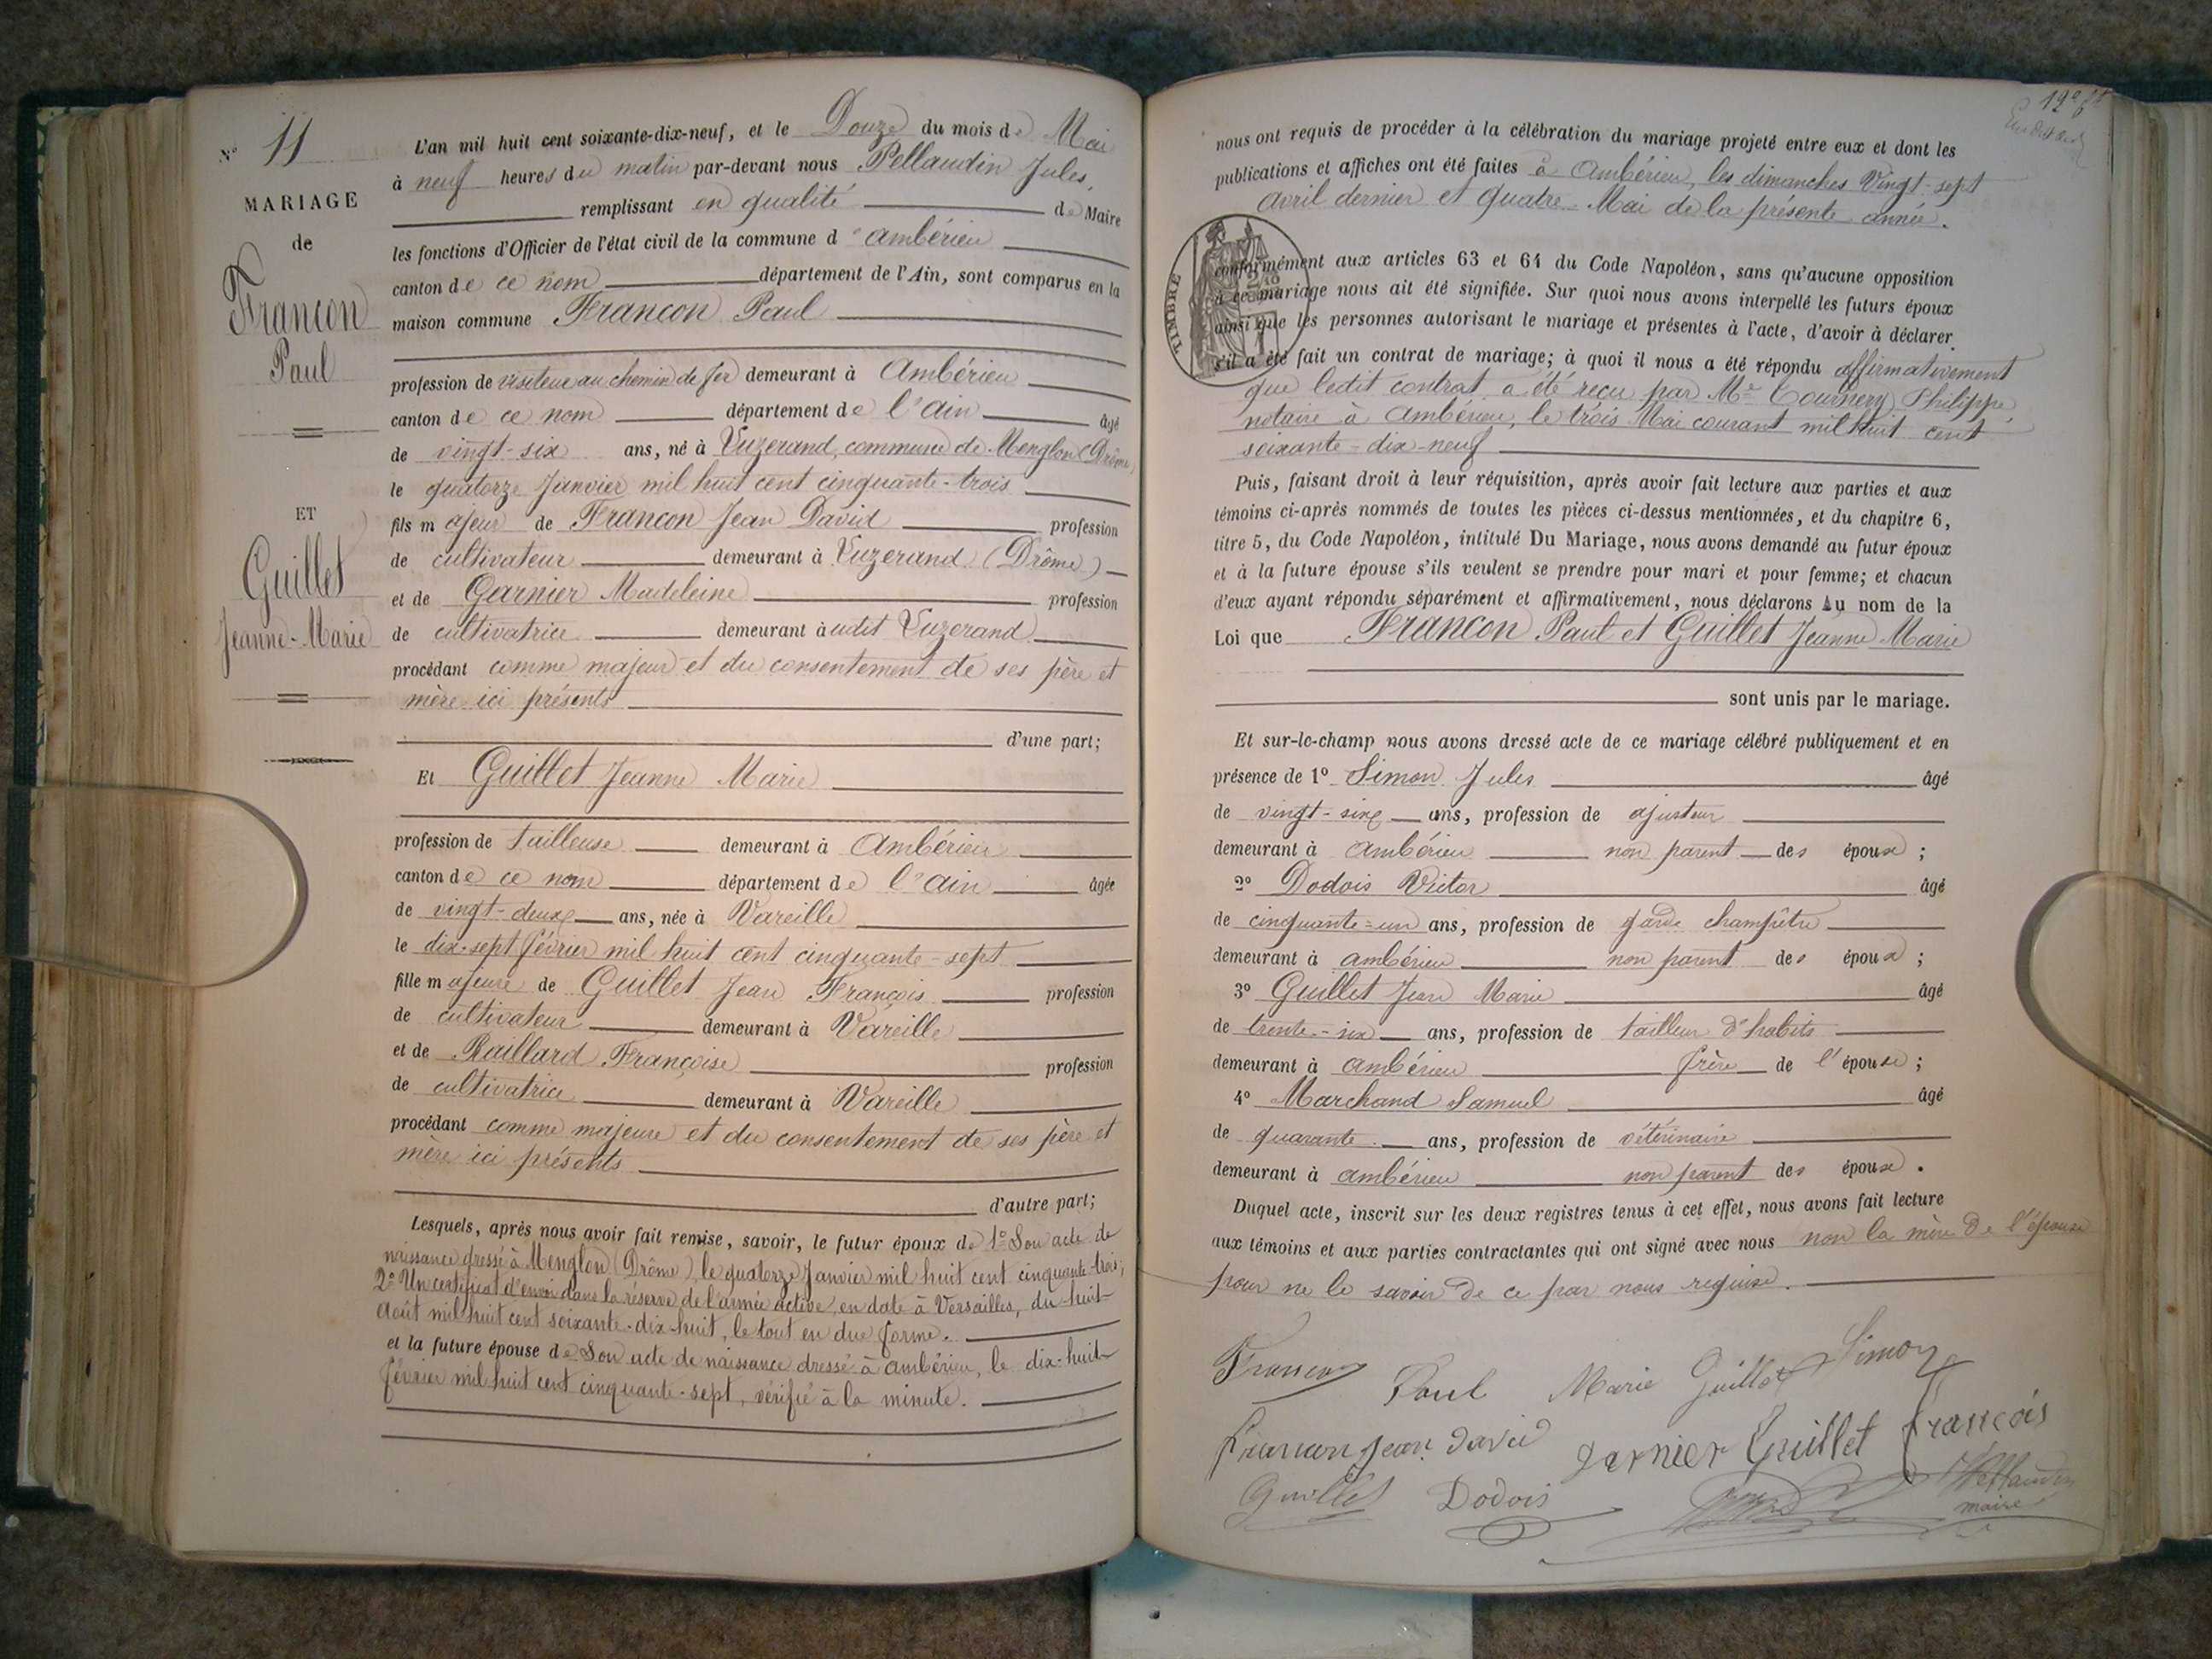 N° 11
MARIAGE
de
Francon
Paul
ET
Guillet
Jeanne-Marie
L'an mil huit cent soixante-dix-neuf, et le Douze du mois de Mai
à neuf heures du matin par-devant nous Pellaudin Jules,
remplissant en qualité de Maire
les fonctions d'Officier de l'état civil de la commune d'Ambérieu
canton de ce nom département de l'Ain, sont comparus en la
maison commune Francon Paul
profession de visiteur au chemin de fer demeurant à Ambérieu
canton de ce nom département de l'Ain âgé
de vingt-six ans, né à Vuzerand, commune de Menglon (Drôme)
le quatorze Janvier mil huit cent cinquante-trois
fils majeur de Francon Jean David profession
de cultivateur demeurant à Vuzerand (Drôme)
et de Garnier Madeleine profession
de cultivatrice demeurant à udit Vuzerand
procédant comme majeur et du consentement de ses père et
mère ici présents
d'une part;
Et Guillet Jeanne Marie
profession de tailleuse demeurant à Ambérieu
canton de ce nom département de l'Ain âgée
de vingt-deux ans, née à Vareille
le dix-sept février mil huit cent cinquante-sept
fille majeure de Guillet Jean François profession
de cultivateur demeurant à Vareille
et de Raillard Françoise profession
de cultivatrice demeurant à Vareille
procédant comme majeure et du consentement de ses père et
mère ici présents
d'autre part;
Lesquels, après nous avoir fait remise, savoir, le futur époux de 1° Son acte de
naissance dressé à Menglon (Drôme), le quatorze Janvier mil huit cent cinquante-trois;
2° Un certificat d'envoi dans la réserve de l'armée active, en date à Versailles, du huit
Août mil huit cent soixante-dix-huit, le tout en due forme.
et la future épouse de Son acte de naissance dressé à Ambérieu, le dix-huit
février mil huit cent cinquante-sept, vérifié à la minute.
nous ont requis de procéder à la célébration du mariage projeté entre eux et dont les
publications et affiches ont été faites à Ambérieu, les dimanches Vingt-sept
avril dernier et quatre Mai de la présente année.
TIMBRE
conformément aux articles 63 et 64 du Code Napoléon, sans qu'aucune opposition
à ce mariage nous ait été signifiée. Sur quoi nous avons interpellé les futurs époux
ainsi que les personnes autorisant le mariage et présentes à l'acte, d'avoir à déclarer
s'il a été fait un contrat de mariage; à quoi il nous a été répondu affirmativement
que ledit contrat a été reçu par Me Tournery Philippe,
notaire à Ambérieu, le trois Mai courant mil huit cent
soixante-dix-neuf
Puis, faisant droit à leur réquisition, après avoir fait lecture aux parties et aux
témoins ci-après nommés de toutes les pièces ci-dessus mentionnées, et du chapitre 6,
titre 5, du Code Napoléon, intitulé Du Mariage, nous avons demandé au futur époux
et à la future épouse s'ils veulent se prendre pour mari et pour femme; et chacun
d'eux ayant répondu séparément et affirmativement, nous déclarons Au nom de la
Loi que Francon Paul et Guillet Jeanne Marie
sont unis par le mariage.
Et sur-le-champ nous avons dressé acte de ce mariage célébré publiquement et en
présence de 1° Simon Jules âgé
de vingt-six ans, profession de ajusteur
demeurant à Ambérieu non parent des époux;
2° Dodois Victor âgé
de cinquante-un ans, profession de garde champêtre
demeurant à Ambérieu non parent des époux;
3° Guillet Jean Marie âgé
de trente-six ans, profession de tailleur d'habits
demeurant à Ambérieu frère de l'épouse;
4° Marchand Samuel âgé
de quarante ans, profession de vétérinaire
demeurant à Ambérieu non parent des époux.
Duquel acte, inscrit sur les deux registres tenus à cet effet, nous avons fait lecture
aux témoins et aux parties contractantes qui ont signé avec nous non la mère de l'épouse
pour ne le savoir de ce par nous requise.
Francon Paul Marie Guillet Simon
Francon Jean David Garnier Guillet François
Guillet Dodois Pellaudin
maire